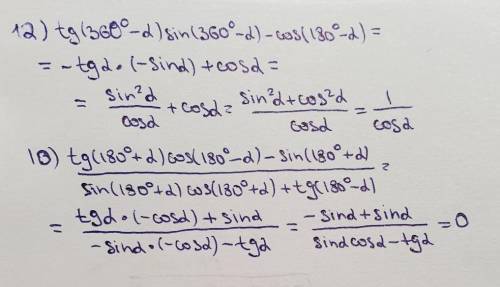 12) tg(360°-α)sin(360°-α)-cos(180°-α)=
= -tgα·(-sinα)+cosα=
= sin²α/cosα + cosα = (sin²α+cos²α)/cosα = 1/cosα
10) (tg(180°+α)cos(180°-α)-sin(180°+α))/(sin(180°+α)cos(180°+α)+tg(180°-α)) =
= (tgα·(-cosα)+sinα)/(-sinα·(-cosα)-tgα) = (-sinα+sinα)/(sinαcosα-tgα) =0